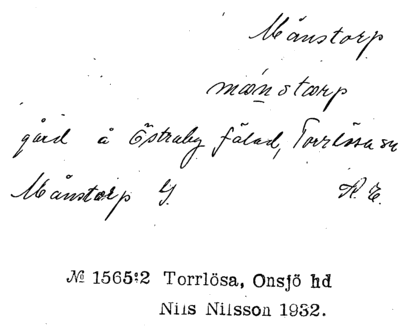 Månstorp
mæ̀nstærp
gård å Östraby fälad, Torrlösa sn
Månstorp G. R. E.
№ 1565:2 Torrlösa, Onsjö hd
Nils Nilsson 1932.